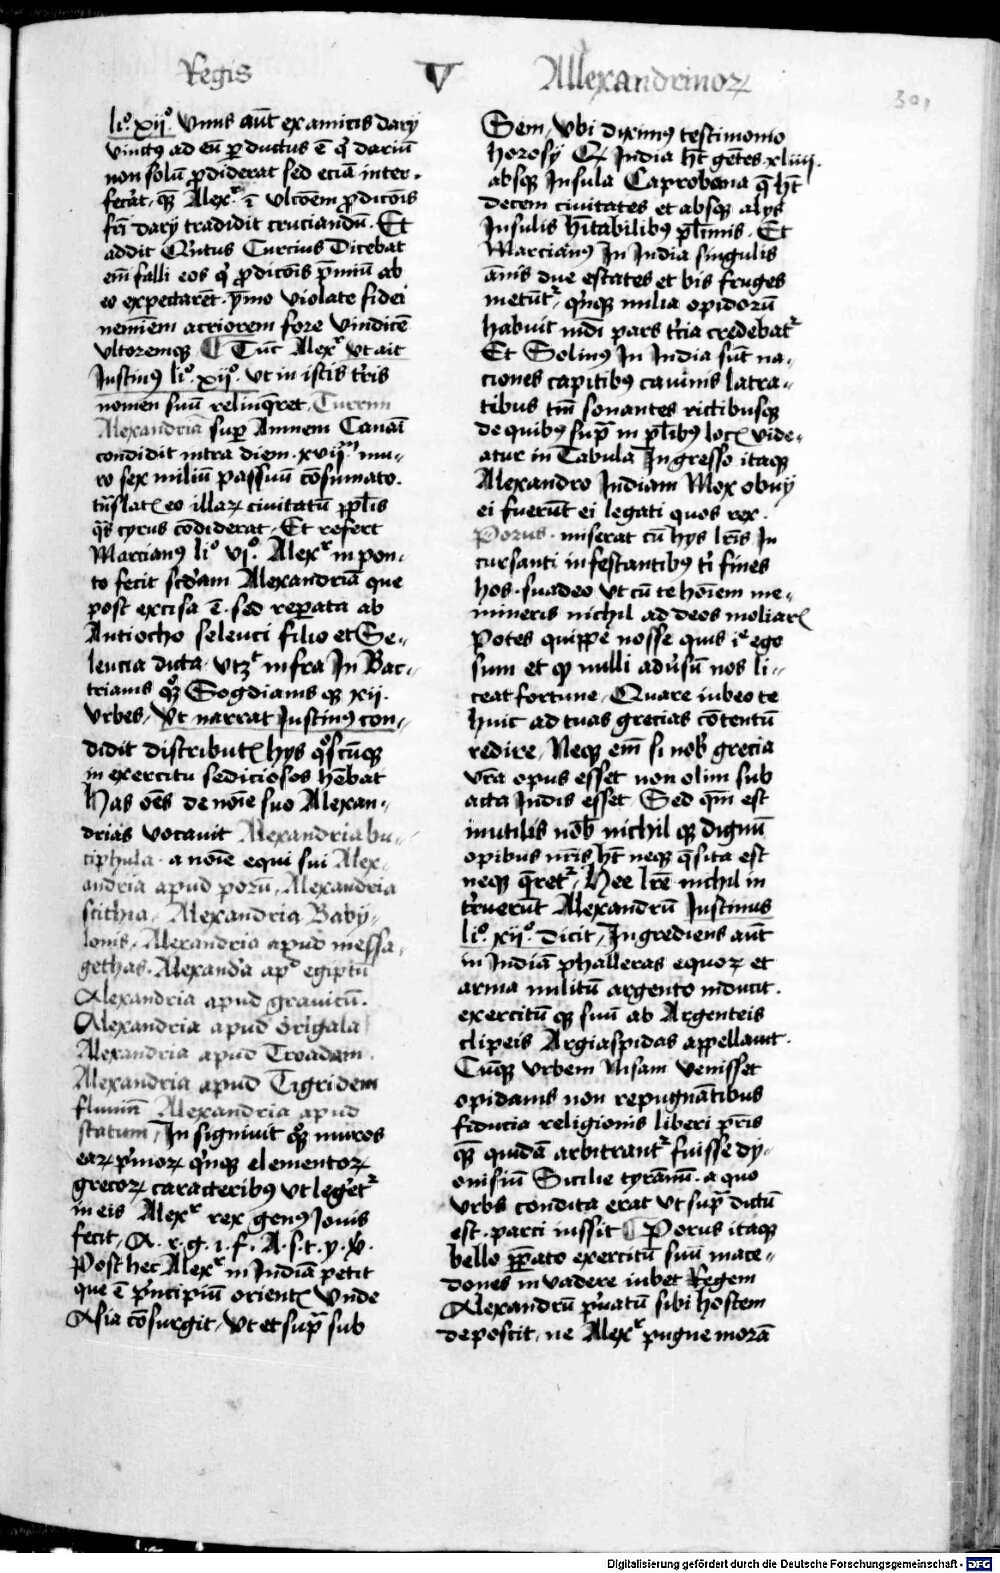 Regis V Allexandrinoꝝ
301
li.º xijº. Vnus aūt ex amicis darij
vinctꝰ ad eū ꝑductus ē qͥ dariū
non solū ꝓdiderat sed eciā inter-
fecᵉat, qꝫ Alexʳ ī vlcōem ꝓdicōis
fri darij tradidit cruciandū. Et
addit Qͥntus Curcius Dicebat
em̄ falli eos qͥ ꝓdicōis p̄miū ab
eo expectarēt. ymo violate fidei
neminem acriorem fore vindicē
vltoremqꝫ. ¶ Tūc Alexʳ vt ait
Justinꝰ li.º xijº. vt in istis tͥris
nomen suū relinq̄ret. Turrim
Alexandriā suꝑ Amnem Tanaī
condidit intra diem xvijm mu-
ro sex miliū passuū cōsumato.
tn̄slatꝭ eo illaꝝ civitatū ppl̄is
qͣs cyrus cōdiderat. Et refert
Marcianꝰ liº vjº. Alexʳ in pon-
to fecit scd̄am Alexandriā que
post excisa ē. sed reꝑata ab
Antiocho seleuci filio et Se-
leucia dicta. vtzͬ infra In Bac-
trianis qͦꝫ Sogdianis qꝫ xij.
vrbes, vt narrat Justinꝰ con-
didit distributꝭ hijs qͦscūqꝫ
in exercitu sediciosos hēbat
Has oēs de nōie suo Alexan-
drias vocauit Alexandria bu-
ciphula. a nōie equi sui Alex-
andria apud porū, Alexandria
scithia, Alexandria Baby-
lonis, Alexandria apud messa-
gethas. Alexandͥa apᵈ egiptū
Alexandria apud grauicū.
Alexandria apud origala
Alexandria apud Troadam.
Alexandria apud Tigridem
fluuiū Alexandria apud
statum, In signiuit qͦꝫ muros
eaꝝ pͥmoꝝ qͥnqꝫ elementoꝝ
grecoꝝ caracteribꝰ vt legᵉetʳ
in eis Alexʳ rex genꝰ Jouis
fecit, A. r. g. i. f. A. s. t. y. x.
Post hec Alexʳ in Indiā petit
que ē pͥncipiū orientꝭ vnde
Asia cōsurgit, vt et supͣ sub
Sem, vbi diximꝰ testimonio
horosij Qꝫ India hꝫt gētes xliiij.
absqꝫ Insula Caprobana q̄ hꝫt
decem ciuitates et absqꝫ alijs
Insulis hītabilibꝰ pl̄imis. Et
Marcianꝰ In India singulis
ānis due estates et bis fruges
metūtʳ, qͥnqꝫ milia opidorū
habuit mūdi pars tͥcia credebatʳ
Et Solinꝰ In India sūt na-
ciones capitibꝰ caninis latra-
tibus tm̄ sonantes rictibusqꝫ
de quibꝰ supͣ in pl̄ibꝰ locꝭ vide-
atur in Tabula Ingresso itaqꝫ
Alexandro Indiam Mox obuij
ei fuerūt ei legati quos rex.
Porus. miserat cū hijs lr̄is In
cursanti infestantibꝰ tͥ fines
hos. suadeo vt cū te hoīem me-
mineris nichil ad deos moliarꝭ
Potes quippe nosse quis iᵉ ego
sum et qꝫ nulli adūsū nos li-
ceat fortune, Quare iubeo te
huic ad tuas grecias cōtentū
redire, Neqꝫ em̄ si nob̄ grecia
vr̄a opus esset non olim sub
acta Indis esset, Sed qm̄ est
inutilis nob̄ nichil qꝫ dignū
opibus nr̄is hꝫt neqꝫ q̄sita est
neqꝫ q̄retʳ, Hee lr̄e nichil in
tͬuerūt Alexandrū Justinus
li.º xijº. dicit, Ingrediens aūt
in Indiā phalleras equoꝝ et
arma militū argento inducit.
exercitū qꝫ suū ab Argenteis
clipeis Argiaspidas appellauit.
Cūqꝫ vrbem Nisam venisset
opidanis non repugnātibus
fiducia religionis liberi pr̄is
qꝫ quidā arbitrantʳ fuisse dy-
onisiū Sicilie tyrānū. a quo
vrbs condita erat vt supͣ dictū
est. parci iussit ¶ Porus itaqꝫ
bello ꝑpato exercitū suū mace-
dones invadere iubet Regem
Alexandrū pͥuatū sibi hostem
deposcit, ne Alexʳ pugne morā